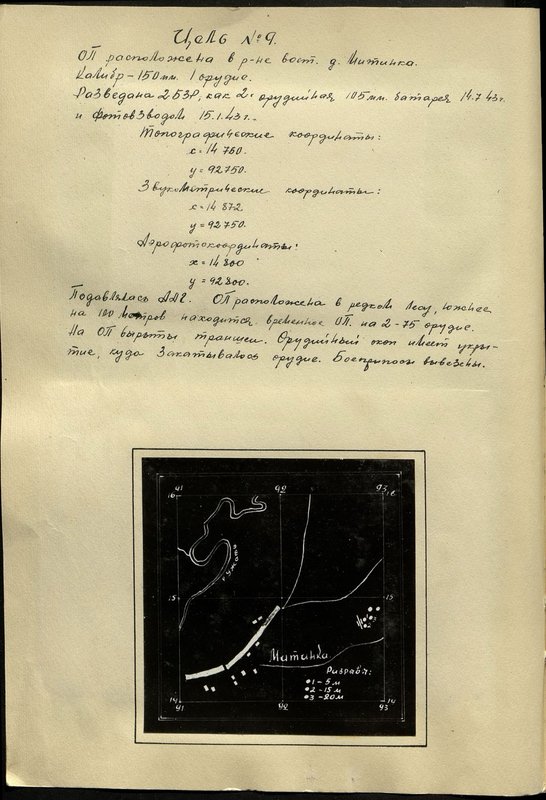 Цель № 9.
ОП расположена в р-не вост. д. Митинка.
Калибр – 150 мм. 1 орудие.
Разведана 253Р, как 2х орудийная 105 мм. батарея 14.7.43г.
и фотовзводом 15.1.43г.
Топографические координаты:
х = 14 750.
у = 92750.
Звукометрические координаты:
х = 14 872
у = 92750.
Аэрофотокоординаты:
х = 14 800
у = 92 800.
Подавлялась ААГ. ОП расположена в редком лесу, южнее
на 100 метров находится временное ОП. на 2-75 орудие.
На ОП вырыты траншеи. Орудийный окоп имеет укры-
тие, куда закатывалось орудие. Боеприпасы вывезены.
91 92 93
16 16
р. Ужать
15 15
№
Митинка
Разрывы:
1 – 5 м
2 – 15 м
3 – 20 м
14 14
91 92 93